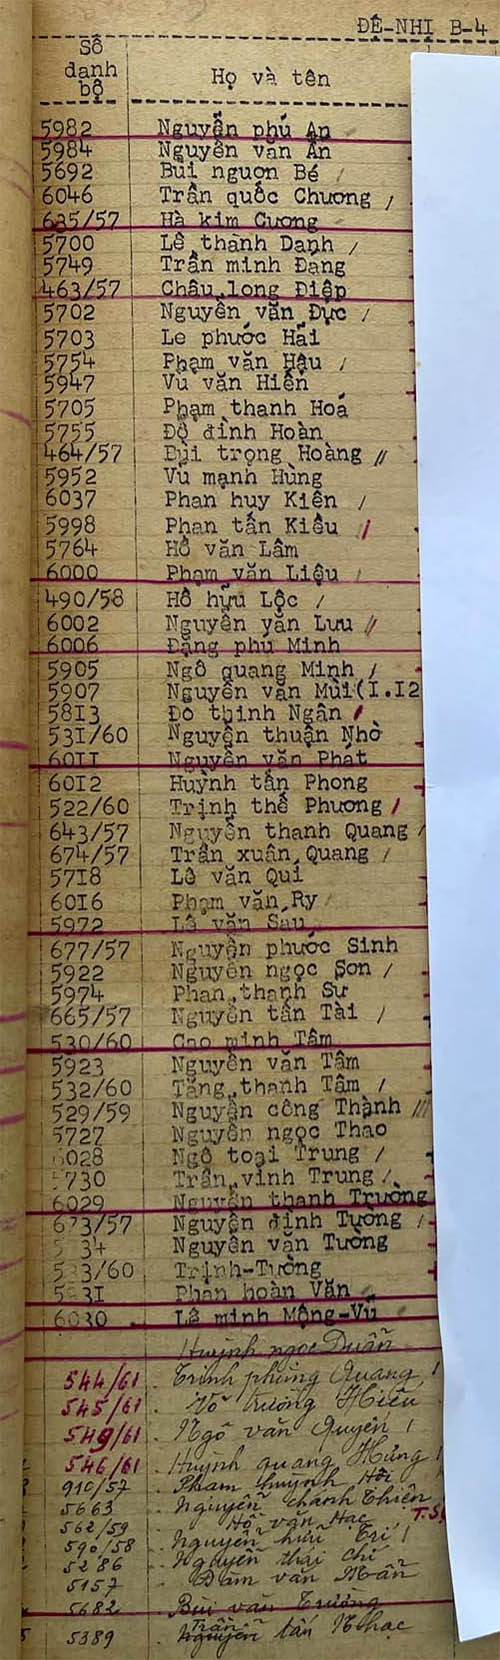 ĐỆ-NHỊ B-4
Số
danh
bộ
Họ và tên
5982 Nguyễn phú An
5984 Nguyễn văn Ân
5692 Bùi nguơn Bé /
6046 Trần quốc Chương /
635/57 Hà kim Cương
5700 Lê thành Danh /
5749 Trần minh Đáng
463/57 Châu long Điệp
5702 Nguyễn văn Đực /
5703 Le phước Hải
5754 Phạm văn Hậu /
5947 Vũ văn Hiến
5705 Phạm thanh Hoá
5755 Đỗ đình Hoàn
464/57 Bùi trọng Hoàng //
5952 Vũ mạnh Hùng
6037 Phan huy Kiên /
5998 Phan tấn Kiều /
5764 Hồ văn Lâm
6000 Phạm văn Liệu /
490/58 Hồ hữu Lộc /
6002 Nguyễn văn Lưu //
6006 Đặng phú Minh
5905 Ngô quang Minh /
5907 Nguyễn văn Mùi(I.I2
58I3 Đỗ thịnh Ngân /
53I/60 Nguyễn thuận Nhờ
60II Nguyễn văn Phát
60I2 Huỳnh tấn Phong
522/60 Trịnh thế Phương /
643/57 Nguyễn thanh Quang /
674/57 Trần xuân Quang /
57I8 Lê văn Quí
60I6 Phạm văn Ry
5972 Lê văn Sáu
677/57 Nguyễn phước Sinh
5922 Nguyễn ngọc Sơn /
5974 Phan thanh Sư
665/57 Nguyễn tấn Tài /
530/60 Cao minh Tâm
5923 Nguyễn văn Tâm
532/60 Tăng thanh Tâm /
529/59 Nguyễn công Thành ///
5727 Nguyễn ngọc Thao
6028 Ngô toại Trung /
5730 Trần vinh Trung /
6029 Nguyễn thanh Trường
673/57 Nguyễn đình Tường /
34 Nguyễn văn Tường
533/60 Trịnh-Tường
Phan hoàn Văn
6030 Lê minh Mộng-Vũ
Huỳnh ngọc Duẩn
544/61 Trịnh phùng Quang /
545/61 Võ trường Hiếu
549/61 Ngô văn Quyền /
546/61 Huỳnh quang Hùng /
910/57 Phạm huỳnh
5663 Nguyễn chánh Thiên
562/59 Hồ văn Hạc
590/58 Nguyễn hữu Trí /
5286 Nguyễn thái chí
5157 Đàm văn Mẫn
5682 Bùi văn Trường
Trần
5389 Nguyễn tấn Nhạc